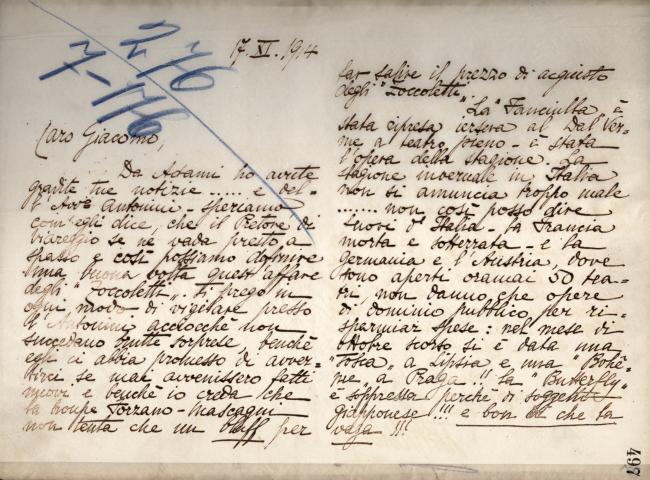 2/6
7-1/6
17. XI. 1914
Caro Giacomo,
Da Adami ho avute
gradite tue notizie ...... e del-
l'Avv. Antonini - speriamo,
com'egli dice, che il Pretore di
Viareggio se ne vada presto a
spasso e così possiamo definire
una buona volta quest'affare
degli "Zoccoletti". Ti prego in
ogni modo di vigilare presso
l'Antonini acciocchè non
succedano brutte sorprese, benchè
egli ci abbia promesso di avver-
tirci se mai avvenissero fatti
nuovi e benchè io creda che
la troupe Sonzogno-Mascagni
non tenta che un bluff per
far salire il prezzo di acquisto
degli "Zoccoletti".
"La" Fanciulla è
stata ripresa iersera al Dal Ver-
me a teatro pieno - è stata
l'opera della stagione. La
stagione invernale in Italia
non si annuncia troppo male
....... non così posso dire
fuori d'Italia - la Francia
morta e sotterrata - e la
Germania e l'Austria, dove
sono aperti oramai 50 tea-
tri non danno che opere
di dominio pubblico per ri-
sparmiar spese: nel mese di
Ottobre scorso si è data una
"Tosca" a Lipsia e una "Bohè-
me" a Praga!!! La "Butterfly"
è soppressa perchè di soggetto
giapponese!!! e bon che la
vaga!!!
497